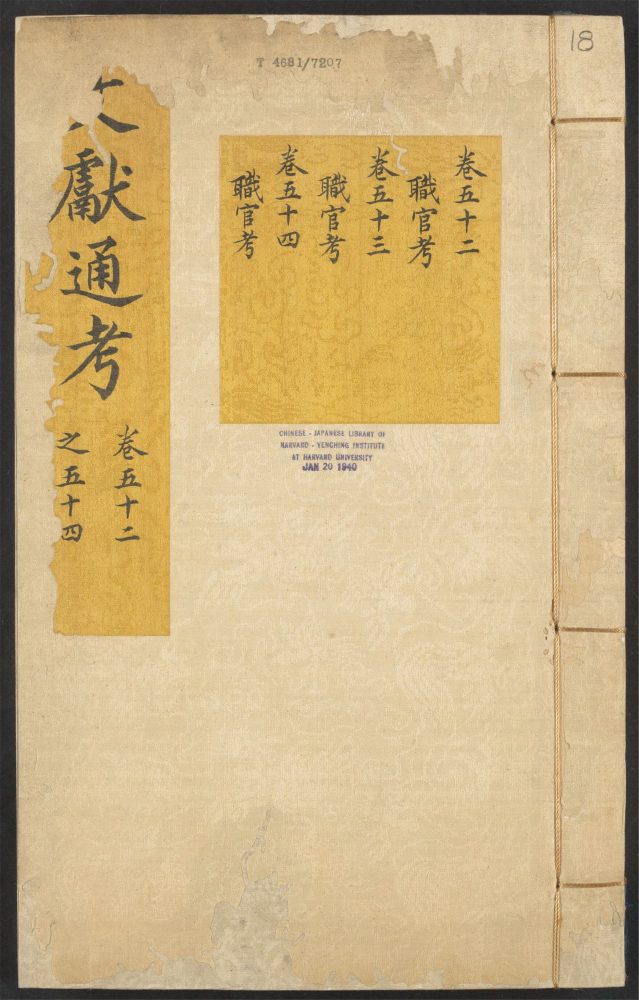 18
T 4681/7207
文獻通考
卷五十二
之五十四
卷五十二
職官考
卷五十三
職官考
卷五十四
職官考
CHINESE - JAPANESE LIBRARY OF
HARVARD - YENCHING INSTITUTE
AT HARVARD UNIVERSITY
JAN 20 1940